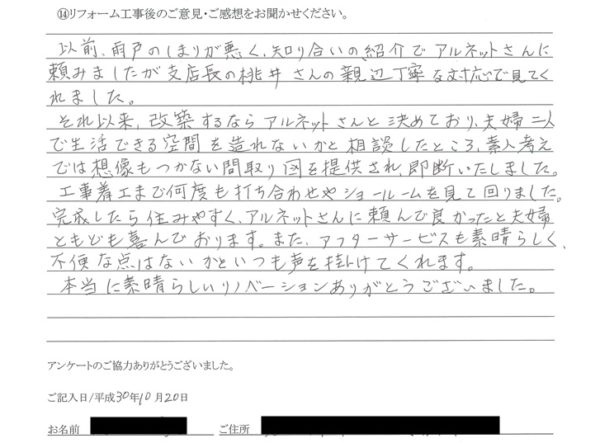 ⑭リフォーム工事後のご意見・ご感想をお聞かせください。
以前、雨戸のしまりが悪く、知り合いの紹介でアルネットさんに
頼みましたが支店長の桃井さんの親辺丁寧な対応で見てく
れました。
それ以来、改築するならアルネットさんと決めており、夫婦二人
で生活できる空間を造れないかと相談したところ、素人考え
では想像もつかない間取り図を提供され、即断いたしました。
工事着工まで何度も打ち合わせやショールームを見て回りました。
完成したら住みやすく、アルネットさんに頼んで良かったと夫婦
ともども喜んでおります。また、アフターサービスも素晴らしく、
不便な点はないかといつも声を掛けてくれます。
本当に素晴らしいリノベーションありがとうございました。
アンケートのご協力ありがとうございました。
ご記入日/平成30年10月20日
お名前 ご住所